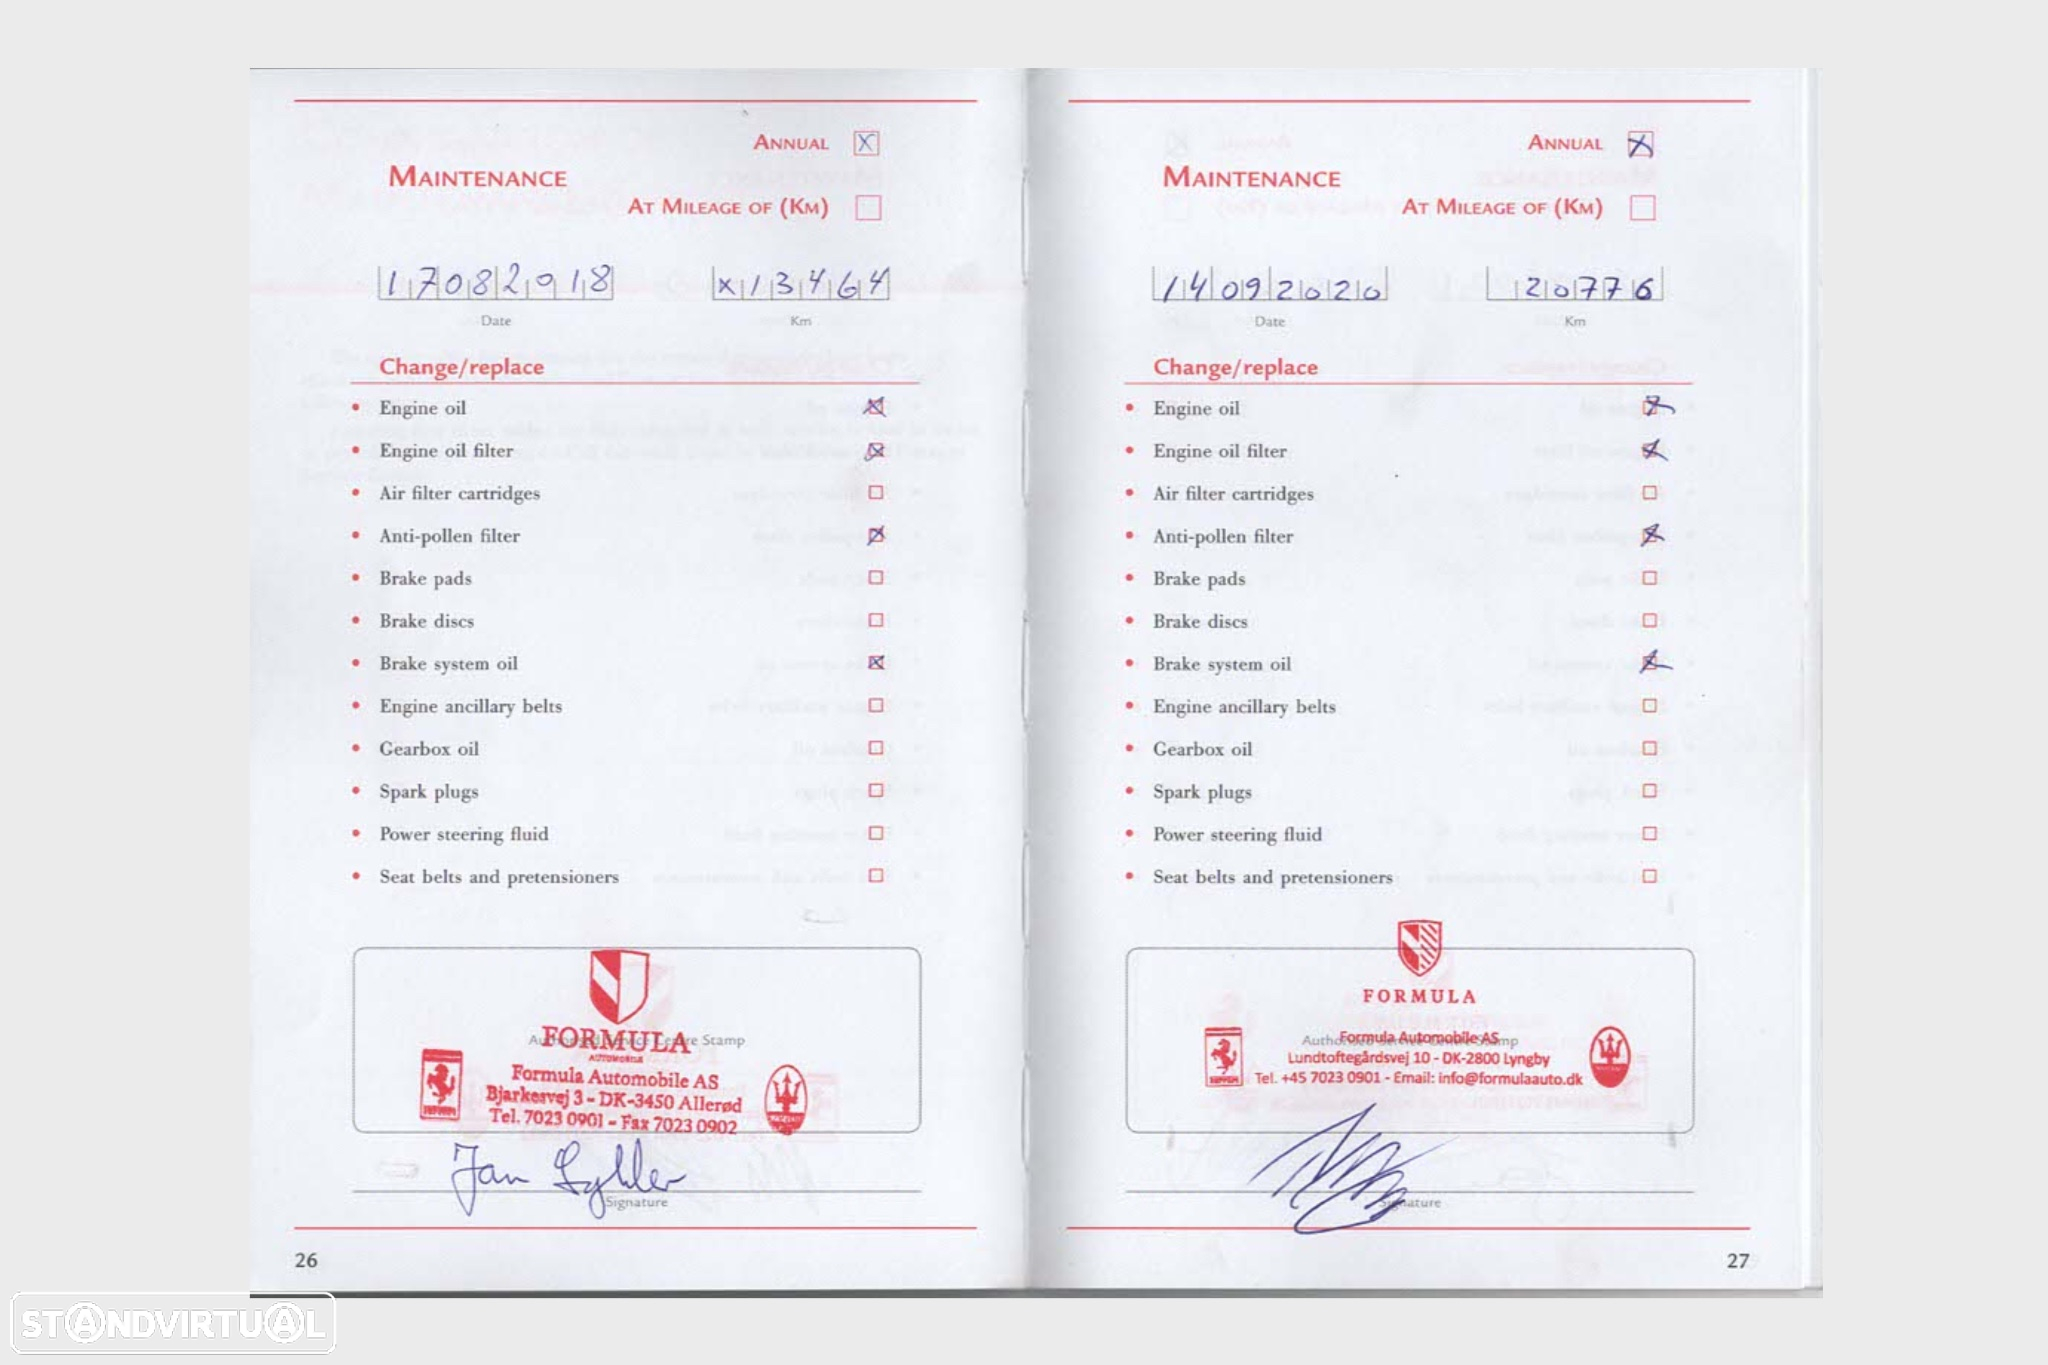 ANNUAL X
MAINTENANCE
AT MILEAGE OF (KM)
17082018 x13464
Date Km
Change/replace
• Engine oil
• Engine oil filter
• Air filter cartridges
• Anti-pollen filter
• Brake pads
• Brake discs
• Brake system oil
• Engine ancillary belts
• Gearbox oil
• Spark plugs
• Power steering fluid
• Seat belts and pretensioners
FORMULA
Authorised Service Centre Stamp
AUTOMOBILE
Formula Automobile AS
Bjarkesvej 3 - DK-3450 Allerød
Tel. 7023 0901 - Fax 7023 0902
Jan
Signature
26
ANNUAL X
MAINTENANCE
AT MILEAGE OF (KM)
14092020 20776
Date Km
Change/replace
• Engine oil
• Engine oil filter
• Air filter cartridges
• Anti-pollen filter
• Brake pads
• Brake discs
• Brake system oil
• Engine ancillary belts
• Gearbox oil
• Spark plugs
• Power steering fluid
• Seat belts and pretensioners
FORMULA
Formula Automobile AS
Authorised Service Centre Stamp
Lundtoftegårdsvej 10 - DK-2800 Lyngby
Tel. +45 7023 0901 - Email: info@formulaauto.dk
Signature
27
STANDVIRTUAL